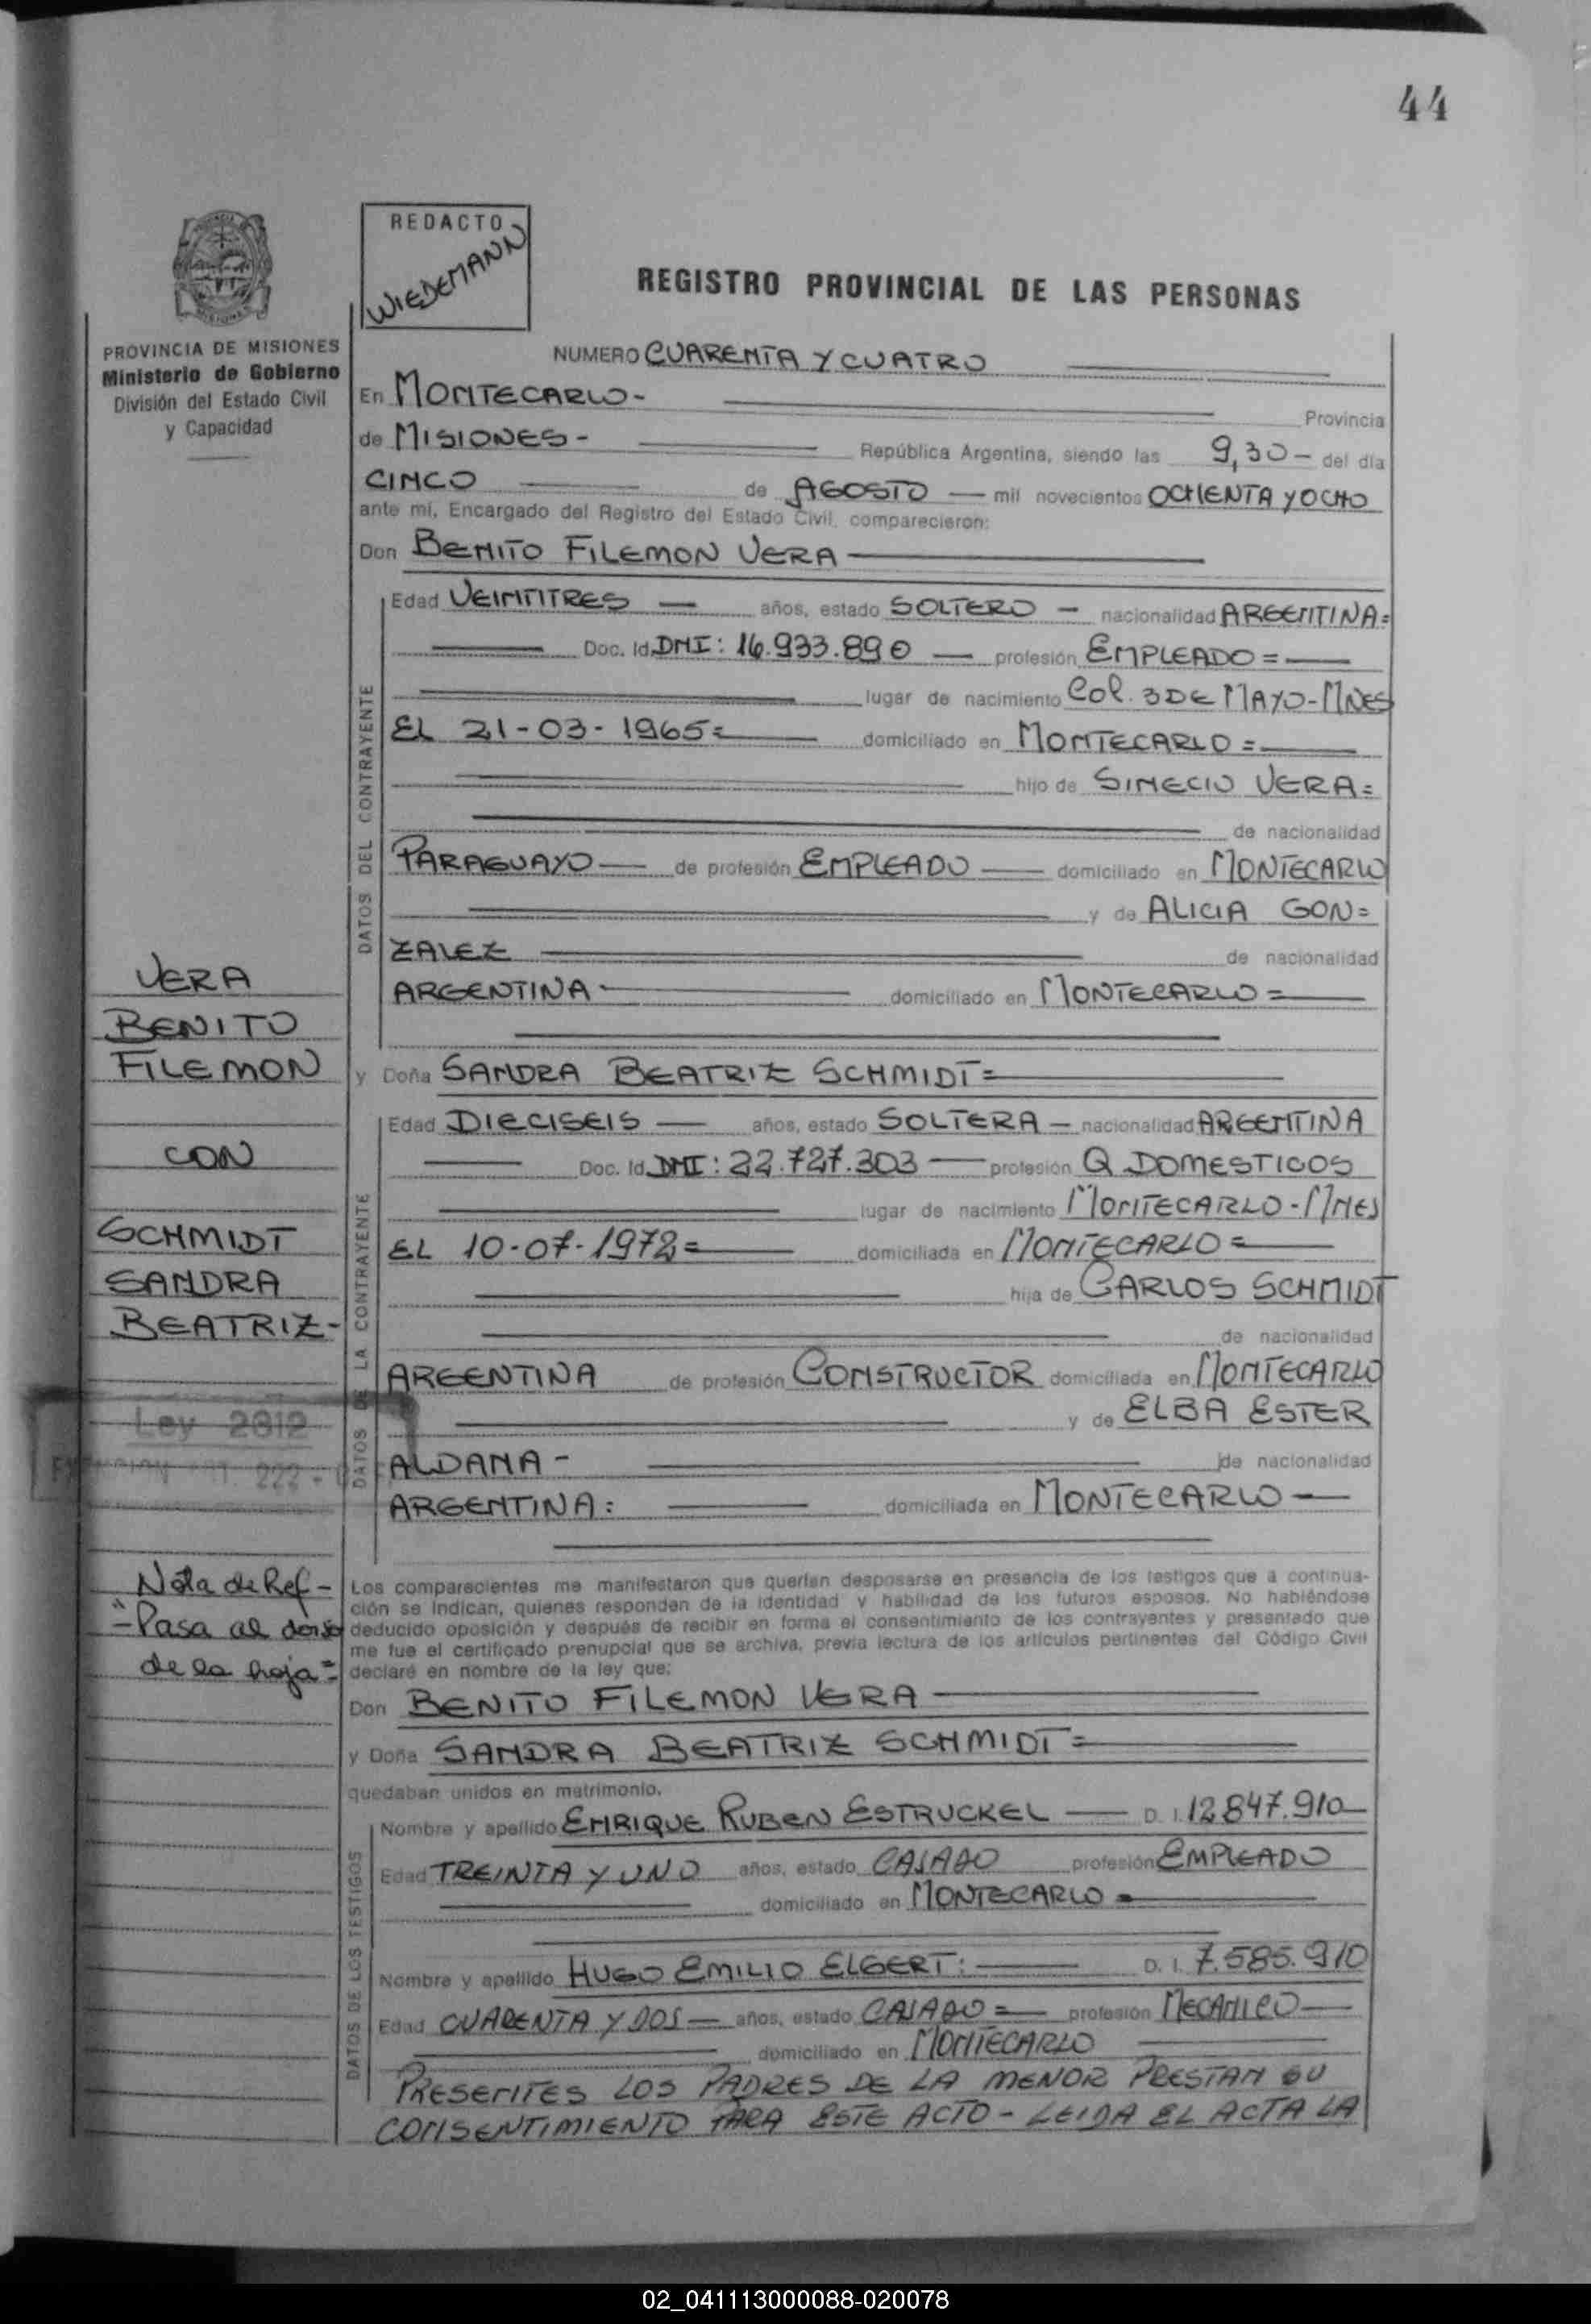 44
REDACTO
WIEDEMANN
REGISTRO PROVINCIAL DE LAS PERSONAS
PROVINCIA DE MISIONES
Ministerio de Gobierno
División del Estado Civil
y Capacidad
NUMERO CUARENTA Y CUATRO
En MONTECARLO-
Provincia
de MISIONES- República Argentina, siendo las 9,30- del día
CINCO de AGOSTO mil novecientos OCHENTA Y OCHO
ante mi, Encargado del Registro del Estado Civil, comparecieron:
Don BENITO FILEMON VERA
DATOS DEL CONTRAYENTE
Edad VEINTITRES años, estado SOLTERO nacionalidad ARGENTINA=
Doc. Id. DNI: 16.933.890 profesión EMPLEADO=
lugar de nacimiento Col. 3 DE MAYO-MNES
EL 21-03-1965= domiciliado en MONTECARLO=
hijo de SINECIO VERA=
de nacionalidad
PARAGUAYO de profesión EMPLEADO domiciliado en MONTECARLO
y de ALICIA GON=
ZALEZ de nacionalidad
ARGENTINA- domiciliado en MONTECARLO=
VERA
BENITO
FILEMON
CON
SCHMIDT
SANDRA
BEATRIZ-
Ley 2812
y Doña SANDRA BEATRIZ SCHMIDT=
DATOS DE LA CONTRAYENTE
Edad DIECISEIS años, estado SOLTERA nacionalidad ARGENTINA
Doc. Id. DNI: 22.727.303 profesión Q DOMESTICOS
lugar de nacimiento MONTECARLO-MNES
EL 10-07-1972= domiciliada en MONTECARLO=
hija de CARLOS SCHMIDT
de nacionalidad
ARGENTINA de profesión CONSTRUCTOR domiciliada en MONTECARLO
y de ELBA ESTER
ALDANA- de nacionalidad
ARGENTINA: domiciliada en MONTECARLO
Nota de Ref-
"-Pasa al dorso
de la hoja"=
Los comparecientes me manifestaron que querían desposarse en presencia de los testigos que a continua-
ción se indican, quienes responden de la identidad y habilidad de los futuros esposos. No habiéndose
deducido oposición y después de recibir en forma el consentimiento de los contrayentes y presentado que
me fue el certificado prenupcial que se archiva, previa lectura de los artículos pertinentes del Código Civil
declaré en nombre de la ley que:
Don BENITO FILEMON VERA
y Doña SANDRA BEATRIZ SCHMIDT=
quedaban unidos en matrimonio.
DATOS DE LOS TESTIGOS
Nombre y apellido ENRIQUE RUBEN ESTRUCKEL D. I. 12.847.910
Edad TREINTA Y UNO años, estado CASADO profesión EMPLEADO
domiciliado en MONTECARLO
Nombre y apellido HUGO EMILIO ELGERT: D. I. 7.585.910
Edad CUARENTA Y DOS años, estado CASADO= profesión MECANICO
domiciliado en MONTECARLO
PRESENTES LOS PADRES DE LA MENOR PRESTAN SU
CONSENTIMIENTO PARA ESTE ACTO - LEIDA EL ACTA LA
02_041113000088-020078